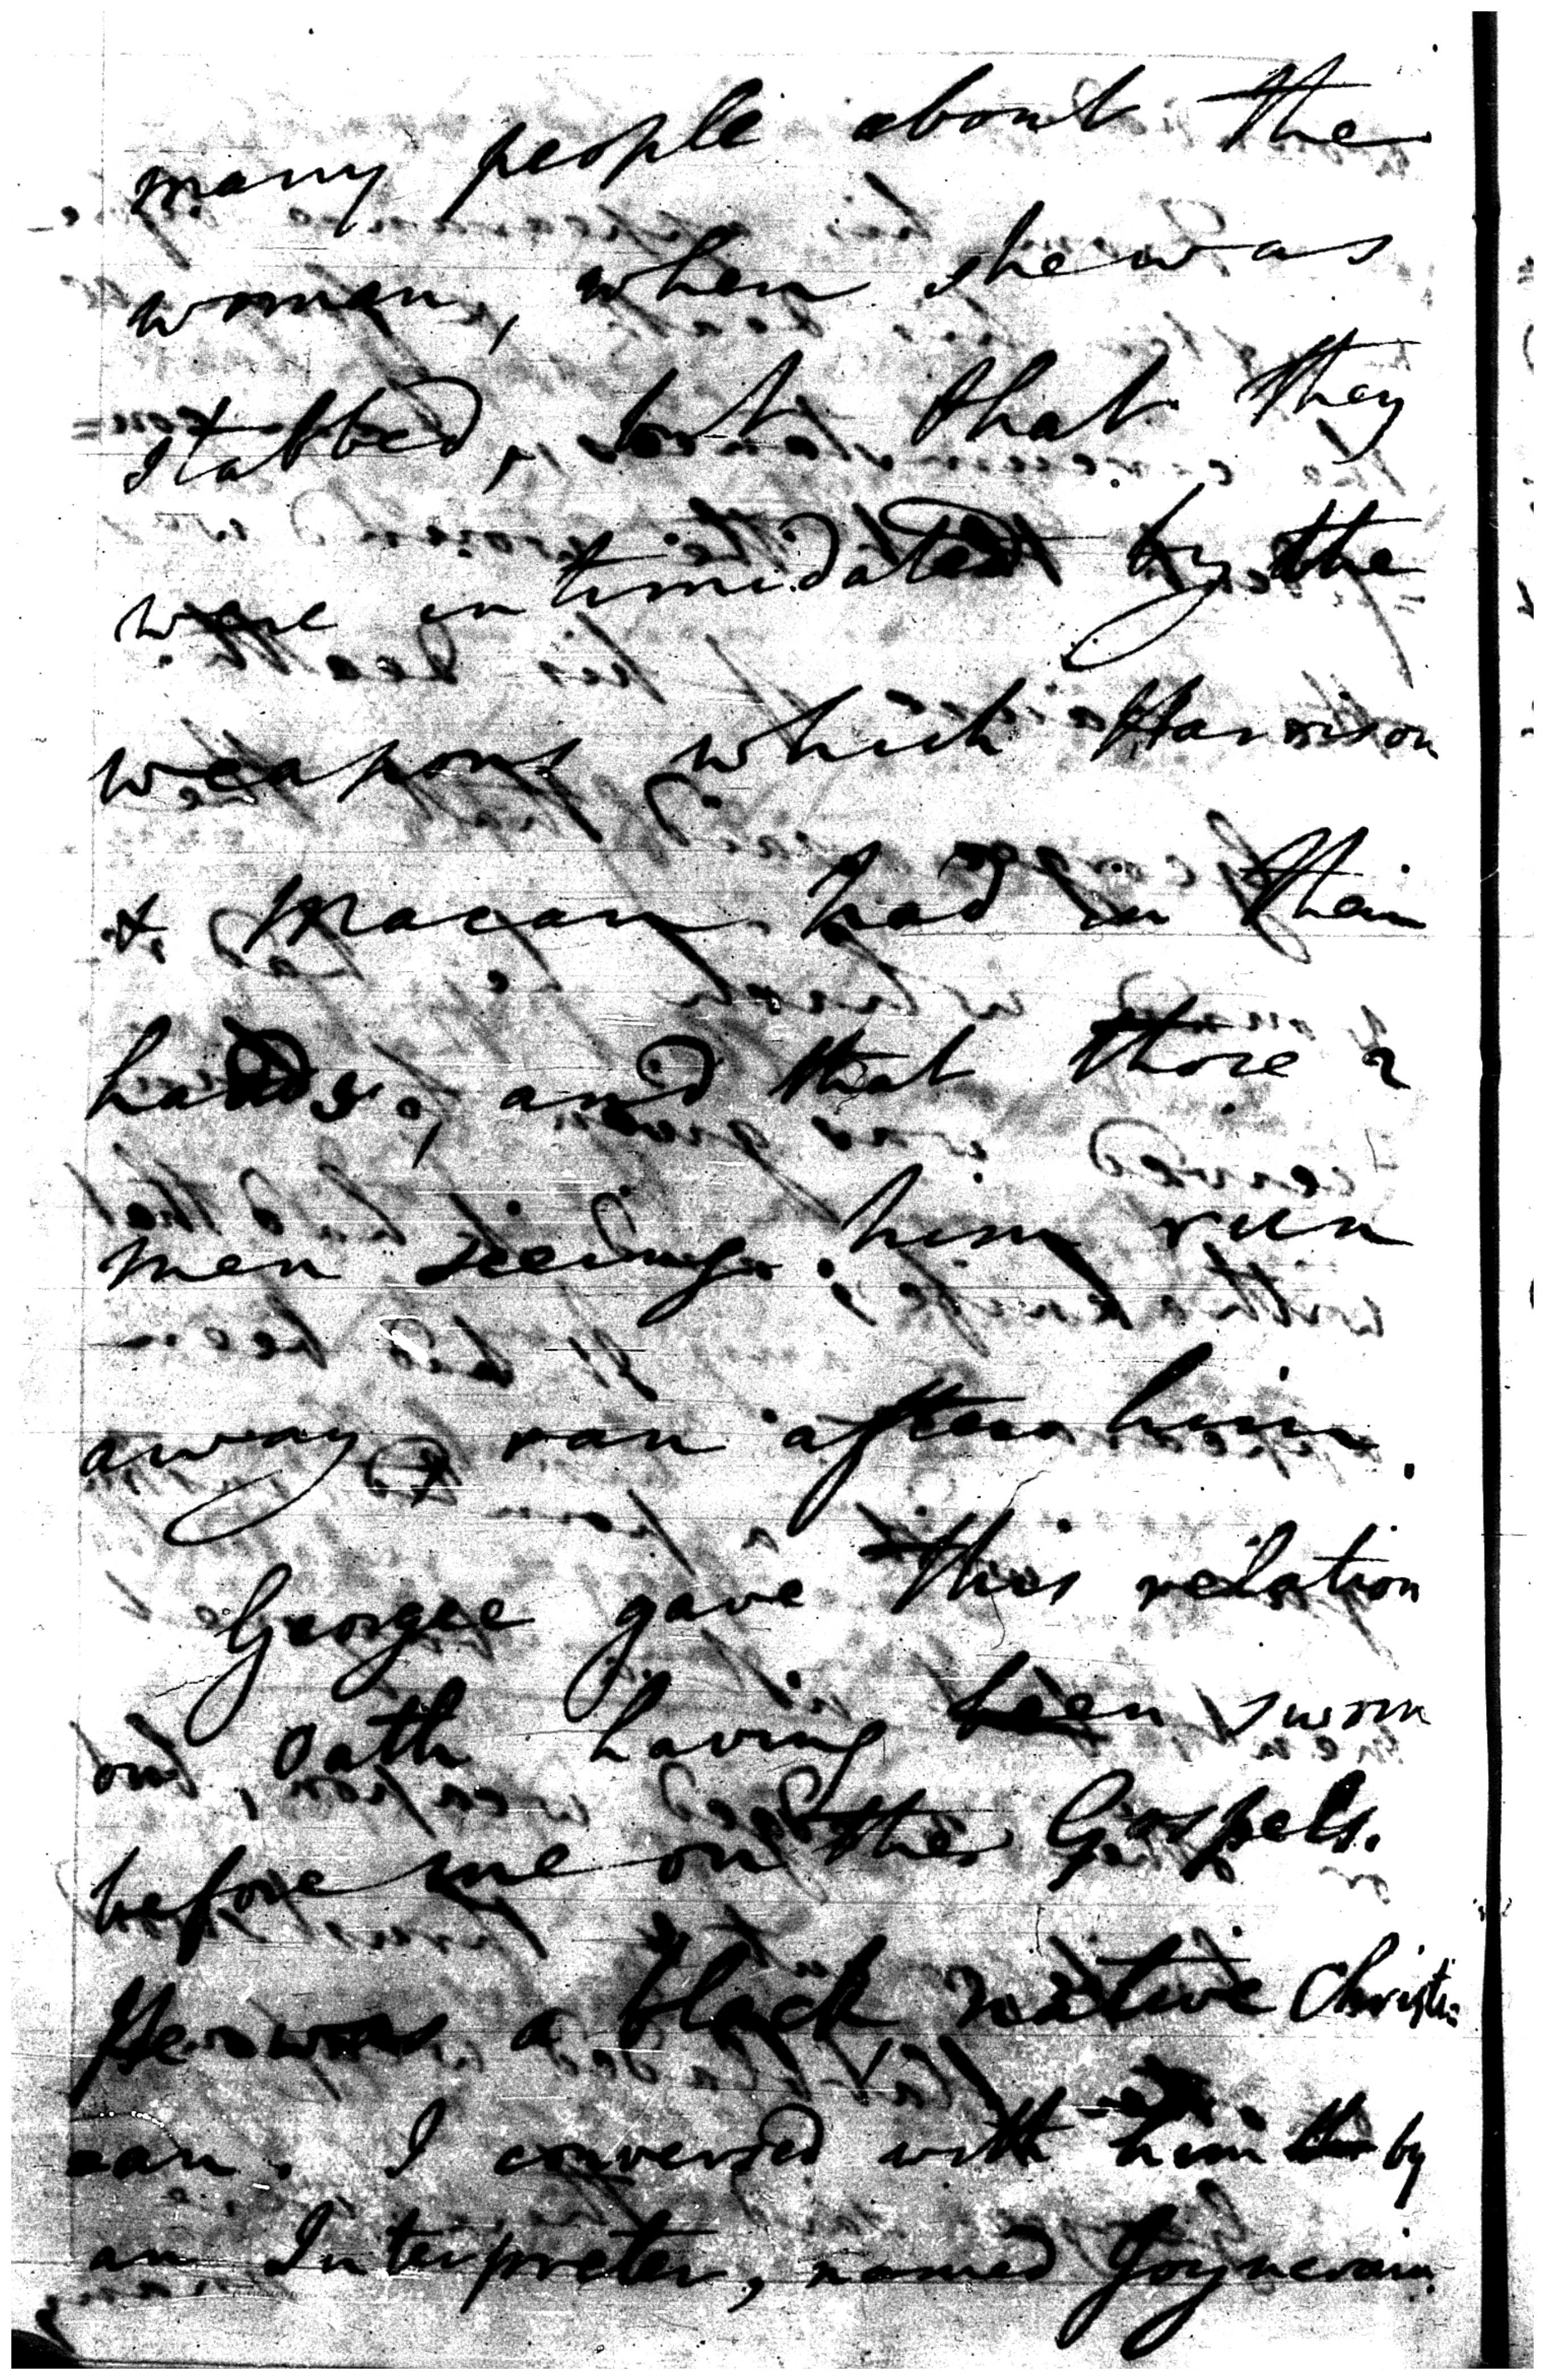 many people about the
woman, when she was
stabbed, but that they
were intimidated by the
weapons which Harrison
& Macan had in their
hands, and that those 2
men seeing him run
away ran after him.
George gave this relation
on oath having been sworn
before me on the Gospels.
He was a black native Christi=
=an. I conversed with him by
an Interpreter, named